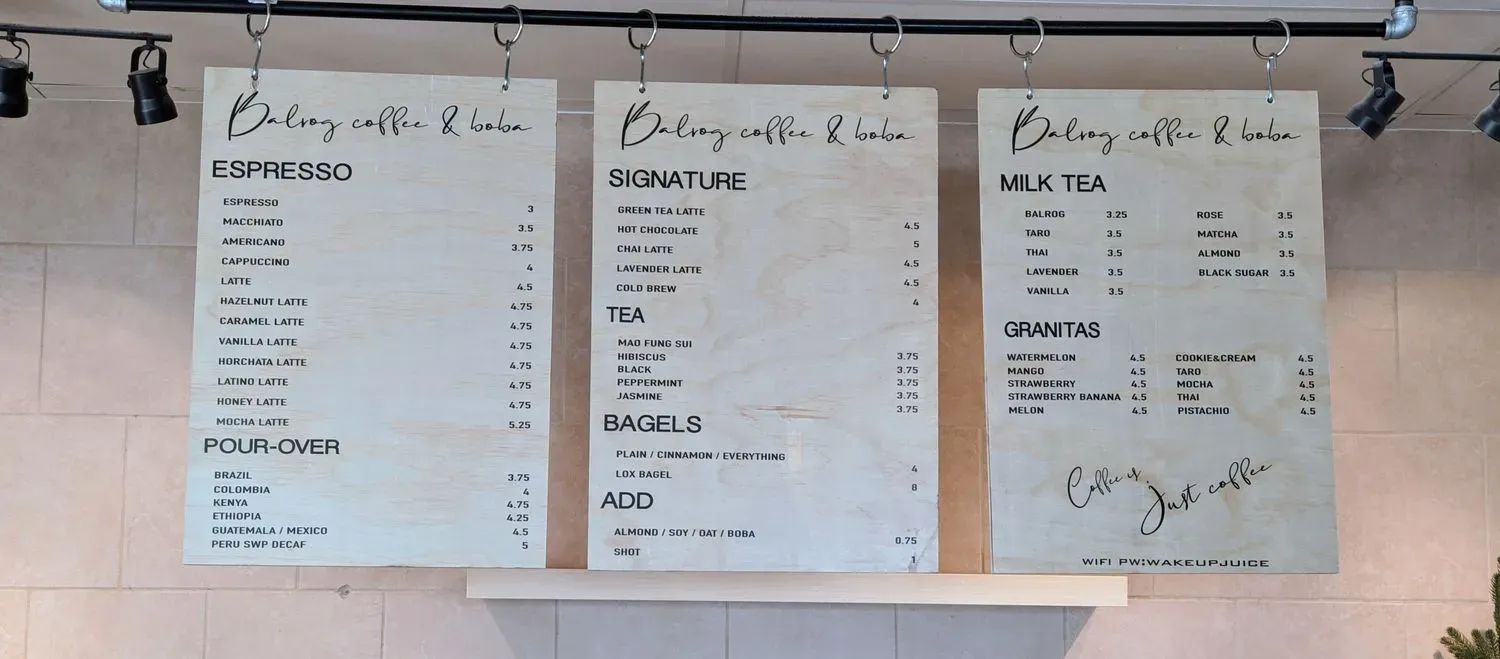 Balrog coffee & boba
ESPRESSO
ESPRESSO 3
MACCHIATO 3.5
AMERICANO 3.75
CAPPUCCINO 4
LATTE 4.5
HAZELNUT LATTE 4.75
CARAMEL LATTE 4.75
VANILLA LATTE 4.75
HORCHATA LATTE 4.75
LATINO LATTE 4.75
HONEY LATTE 4.75
MOCHA LATTE 5.25
POUR-OVER
BRAZIL 3.75
COLOMBIA 4
KENYA 4.75
ETHIOPIA 4.25
GUATEMALA / MEXICO 4.5
PERU SWP DECAF 5
Balrog coffee & boba
SIGNATURE
GREEN TEA LATTE 4.5
HOT CHOCOLATE 5
CHAI LATTE 4.5
LAVENDER LATTE 4.5
COLD BREW 4
TEA
MAO FUNG SUI 3.75
HIBISCUS 3.75
BLACK 3.75
PEPPERMINT 3.75
JASMINE 3.75
BAGELS
PLAIN / CINNAMON / EVERYTHING 4
LOX BAGEL 8
ADD
ALMOND / SOY / OAT / BOBA 0.75
SHOT 1
Balrog coffee & boba
MILK TEA
BALROG 3.25 ROSE 3.5
TARO 3.5 MATCHA 3.5
THAI 3.5 ALMOND 3.5
LAVENDER 3.5 BLACK SUGAR 3.5
VANILLA 3.5
GRANITAS
WATERMELON 4.5 COOKIE&CREAM 4.5
MANGO 4.5 TARO 4.5
STRAWBERRY 4.5 MOCHA 4.5
STRAWBERRY BANANA 4.5 THAI 4.5
MELON 4.5 PISTACHIO 4.5
Coffee is
Just coffee
WIFI PW:WAKEUPJUICE